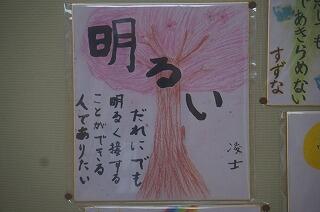 明るい
だれにでも
明るく接する
ことができる
人でありたい
凌士
であきらめない
すずな